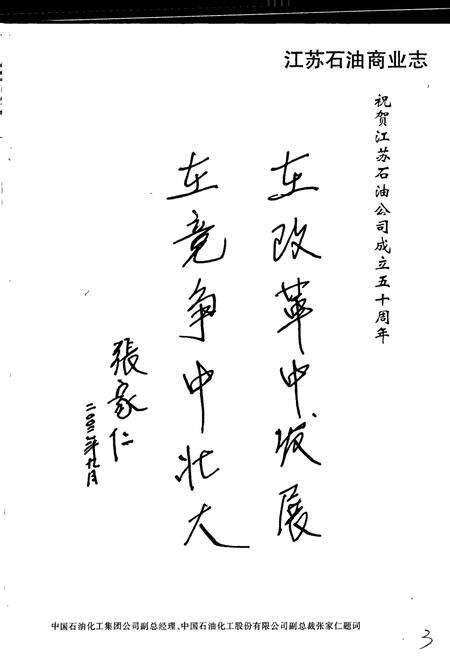 江苏石油商业志
祝贺江苏石油公司成立五十周年
在改革中发展
在竞争中壮大
張家仁
二〇〇二年九月
中国石油化工集团公司副总经理、中国石油化工股份有限公司副总裁张家仁题词
3